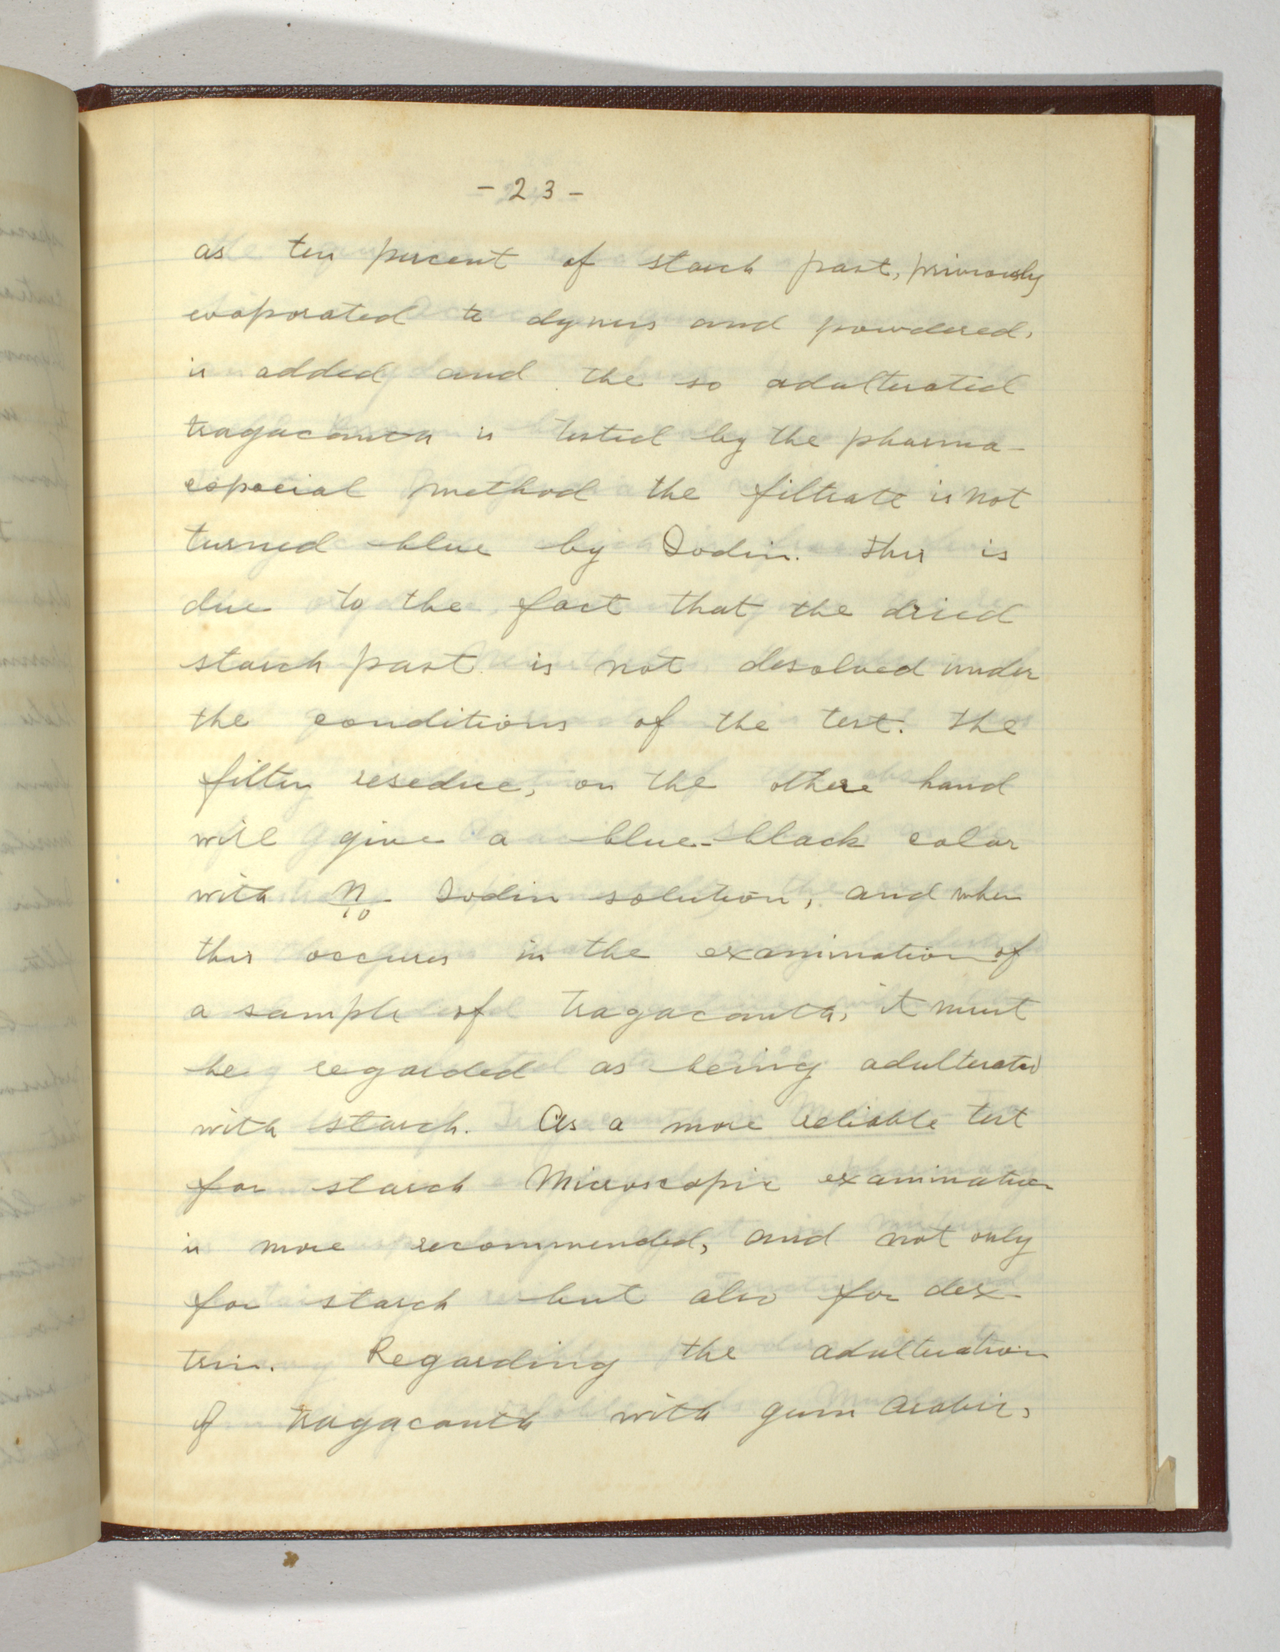 - 23 -
as ten percent of starch past, previously
evaporated to dyness and powdered,
is added and the so adulterated
tragacanta is tested by the pharma-
copocial method the filtrate is not
turned blue by Iodin. This is
due to the fact that the dried
starch past is not desolved under
the conditions of the test. The
filter resedue, on the othere hand
will give a blue-black color
with N/10 Iodin solution, and when
this occures in the examination of
a sample of Tragacanta, it must
be regarded as being adulterated
with starch. As a more Reliable test
for starch Microscopic examination
is more recommended, and not only
for starch but also for dex-
trin. Regarding the adulteration
of Tragacanth with gum Arabic,